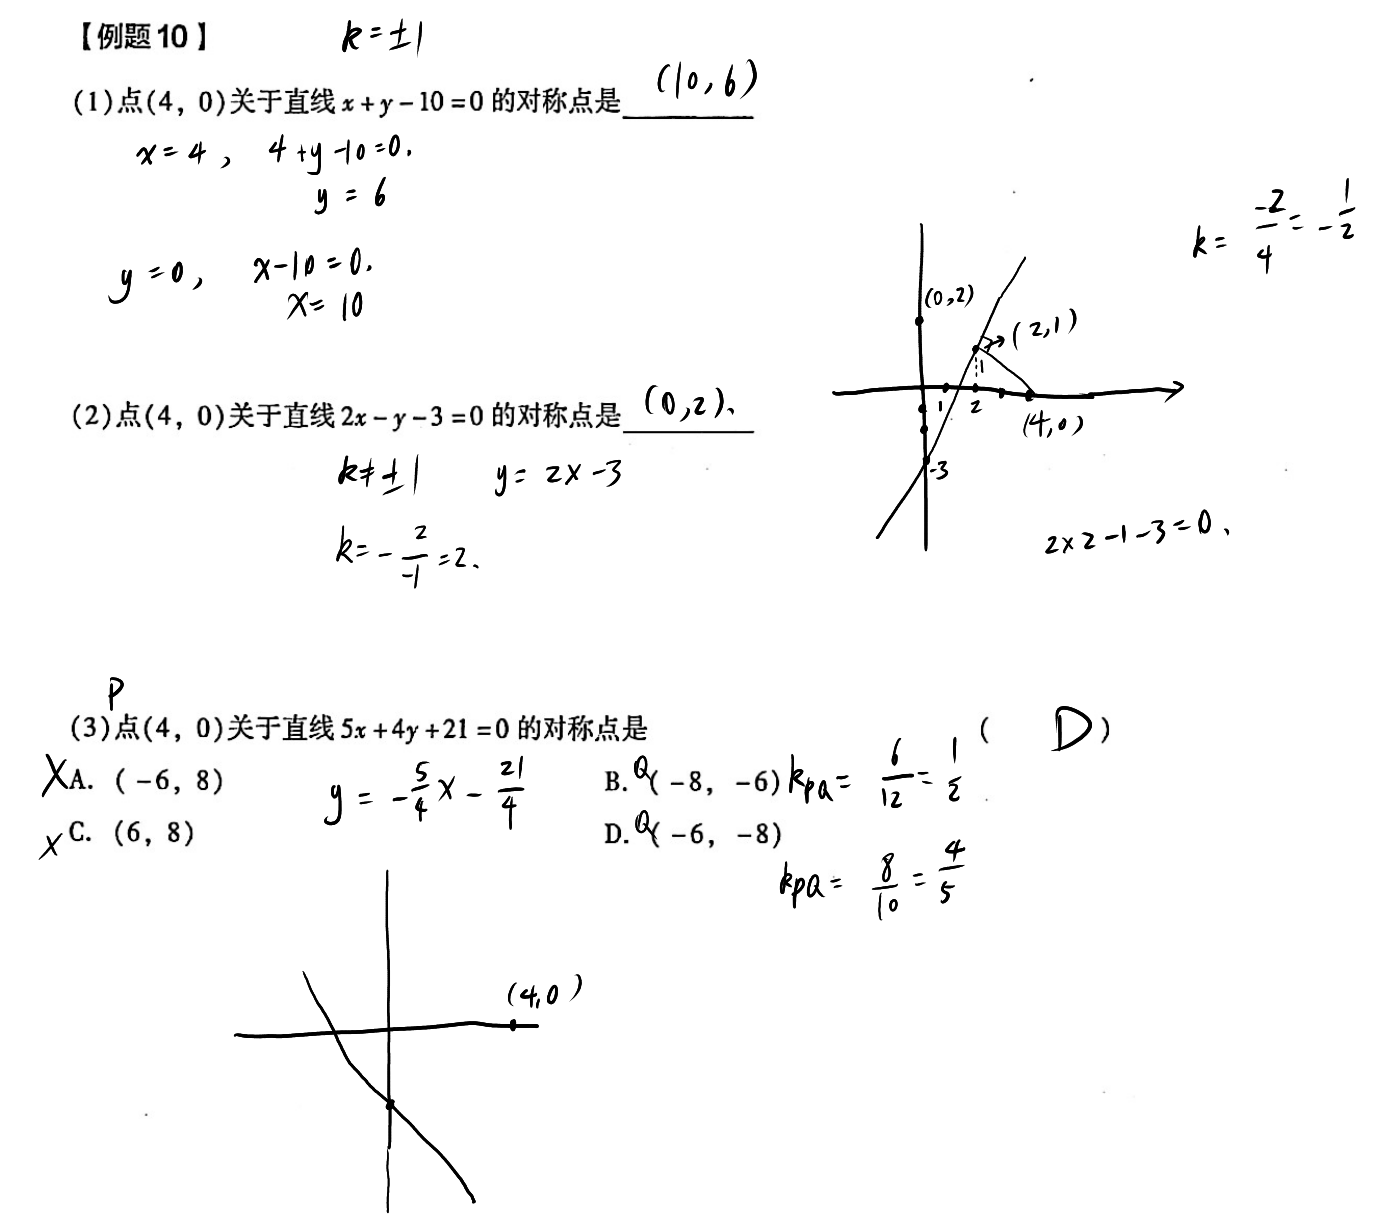 【例题10】 k=±1
(1)点(4, 0)关于直线x+y-10=0的对称点是 (10,6)
x=4, 4+y-10=0.
y=6
y=0, x-10=0.
x=10
k= -2/4 = -1/2
(0,2)
(2,1)
1
1 2
(4,0)
-3
2×2-1-3=0.
(2)点(4, 0)关于直线2x-y-3=0的对称点是 (0,2).
k≠±1 y=2x-3
k=- 2/-1 =2.
P
(3)点(4, 0)关于直线5x+4y+21=0的对称点是 ( D )
XA. (-6, 8) B. Q(-8, -6) kPQ= 6/12 = 1/2
y = -5/4 x - 21/4
X C. (6, 8) D. Q(-6, -8)
kPQ= 8/10 = 4/5
(4,0)